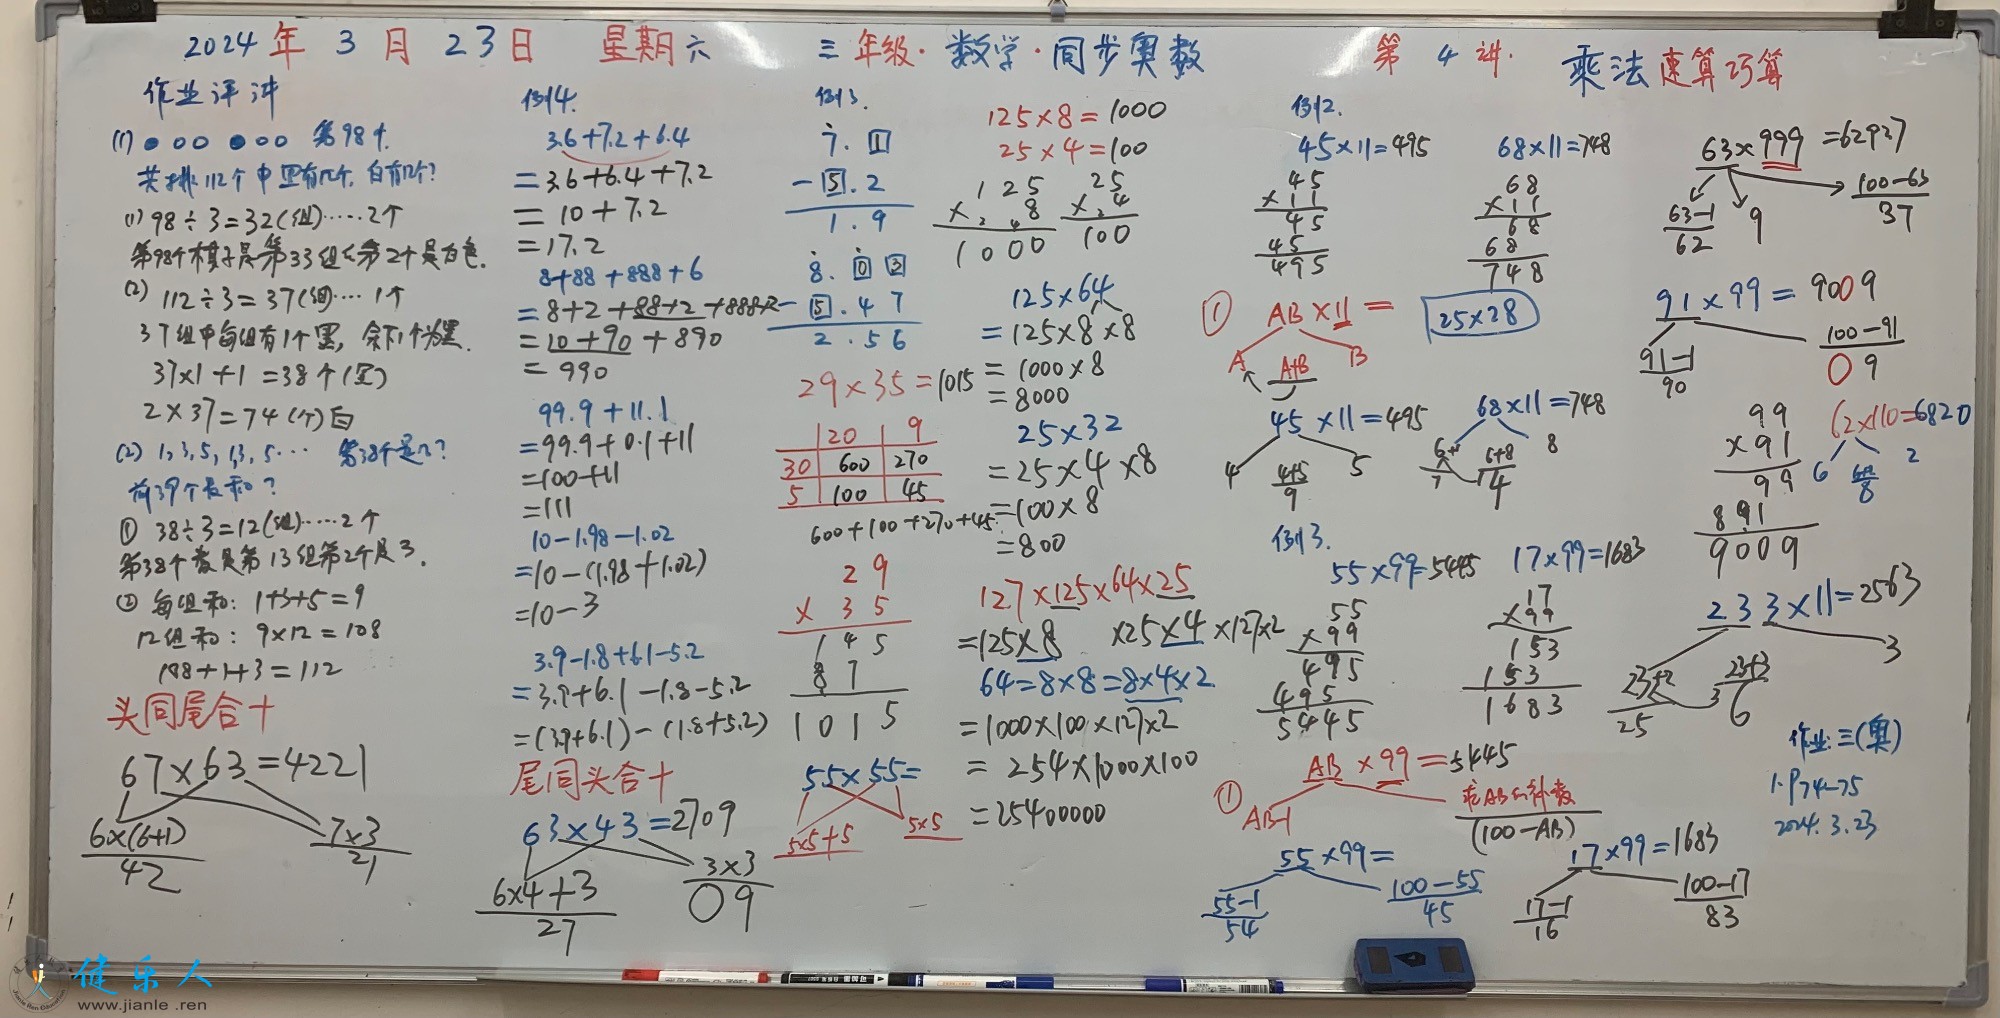 2024年3月23日 星期六 三年级·数学·同步奥数 第4讲. 乘法速算巧算
作业评讲
(1) ●○○ ●○○ 第98个.
共排112个中黑有几个, 白有几个?
(1) 98÷3=32(组)……2个
第98个棋子是第33组的第2个是白色.
(2) 112÷3=37(组)…1个
37组中每组有1个黑, 余下1个为黑.
37×1+1=38个(黑)
2×37=74(个)白
(2) 1,3,5,1,3,5… 第38个是几?
前39个
① 38÷3=12(组)……2个
第38个数是第13组第2个是3.
② 每组和: 1+3+5=9
12组和: 9×12=108
108+1+3=112
头同尾合十
67×63=4221
6×(6+1)
42
7×3
21
例4.
3.6+7.2+6.4
=3.6+6.4+7.2
=10+7.2
=17.2
8+88+888+6
=8+2+88+2+888+2
=10+90+890
=990
99.9+11.1
=99.9+0.1+11
=100+11
=111
10-1.98-1.02
=10-(1.98+1.02)
=10-3
3.9-1.8+6.1-5.2
=3.9+6.1-1.8-5.2
=(3.9+6.1)-(1.8+5.2)
尾同头合十
63×43=2709
6×4+3
27
3×3
09
例3.
7.1
-5.2
1.9
8.03
-5.47
2.56
29×35=1015
20 9
30 600 270
5 100 45
600+100+270+45
29
×35
145
87
1015
55×55=
5×5+5
5×5
125×8=1000
25×4=100
125
×8
1000
25
×4
100
125×64
=125×8×8
=1000×8
=8000
25×32
=25×4×8
=100×8
=800
127×125×64×25
=125×8 ×25×4×127×2
64=8×8=8×4×2
=1000×100×127×2
=254×1000×100
=25400000
例2.
45×11=495
45
×11
45
45
495
68×11=748
68
×11
68
68
748
① AB×11=
A
A+B
B
25×28
45×11=495
4
4+5
9
5
68×11=748
6+1
7
6+8
14
8
例3.
55×99=5445
55
×99
495
495
5445
17×99=1683
17
×99
153
153
1683
① AB×99=5445
AB-1
求AB的补数
(100-AB)
55×99=
55-1
54
100-55
45
17×99=1683
17-1
16
100-17
83
63×999=62937
63-1
62
9
100-63
37
91×99=9009
91-1
90
100-91
09
99
×91
99
891
9009
62×110=6820
6
6+2
8
2
233×11=2563
23+2
25
23+3
3
6
3
作业:三(奥)
1.P74-75
2024.3.23
健乐人
www.jianle.ren